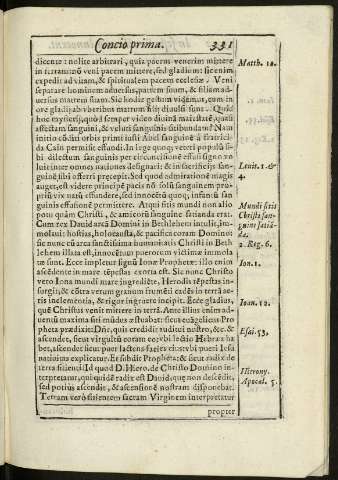 Concio prima. 331
dicente: nolite arbitrari, quia pacem venerim mittere
in terram: nō veni pacem mittere, sed gladium: sic enim
expedit ad vitam, & spiritualem pacem ecclesiæ. Veni
separare hominem aduersus, patrem suum, & filiam ad-
uersus matrem suam. Sic hodie gestum videmus, cum in-
ore gladij ab vberibus matrum filij diuulsi sunt. Quod
hoc mysterij, quòd semper video diuina maiestatē, quasi
affectam sanguini, & velut sanguinis sitibundam? Nam
initio cōditi orbis primi iusti Abel sanguinē à fratrici-
da Cain permisit effundi. In lege quoq; veteri populū si-
bi dilectum sanguinis per circumcisionē effusi signo vo
luit inter omnes nationes designari: & in sacrificijs san-
guinē sibi offerri præcepit. Sed quod admirationē magis
auget, est videre principē pacis nō solū sanguinem pro-
priū vix natū effundere, sed innocētū quoq; infantū san
guinis effusionē permittere. Atqui sitis mundi non alio
potuit quàm Christi, & amicorū sanguine satianda erat.
Cum rex Dauid arcā Domini in Bethlehem intulit, im-
molauit hostias, holocausta, & pacifica coram Domino:
sic nunc cū arca sanctissima humanitatis Christi in Beth
lehem illata est, innocentum puerorum victimæ immola
tæ sunt. Ecce impletur signū Ionæ Prophetæ: illo enim
ascēdente in mare tēpestas exorta est. Sic nunc Christo
vero Iona mundi mare ingrediēte, Herodis tēpestas in-
surgit, & cōtra verum granum frumēti cædis in terrā æs-
tis inclementia, & rigor ingruere incipit. Ecce gladius,
quē Christus venit mittere in terrā. Ante illius enim ad-
uentū maxima siti mūdus æstuabat: sicut euāgelicus Pro
pheta prædixit: Dñe, quis credidit auditui nostro, &c. &
ascendet, sicut virgultū coram eo: vbi lectio Hebræa ha
bet, ascendet sicut puer lactens: facies siquidem pueri Iesu
natiuitas explicatur. Et subdit Propheta: & sicut radix de
terra sitienti: Id quod D. Hiero. de Christo Domino in-
terpretatur, qui quidē radix est Dauid, quæ non descēdit,
sed potius ascendit, & ad nostram
Terram verò sitientem sacram Virginem interpretatur
propter
Matth. 10.
Leuit. 1. &
4.
Mundi sitis
Christi san-
guine satiā-
da.
2. Reg. 6.
Ion. 1.
Ioan. 12.
Esai. 53.
Hierony.
Apocal. 5.